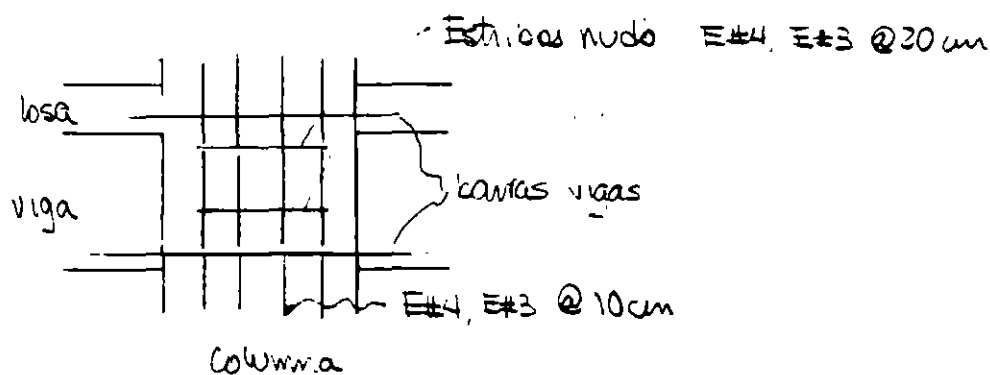 Estribos nudo E#4, E#3 @20 cm
losa
viga
barras vigas
E#4, E#3 @ 10 cm
Columna